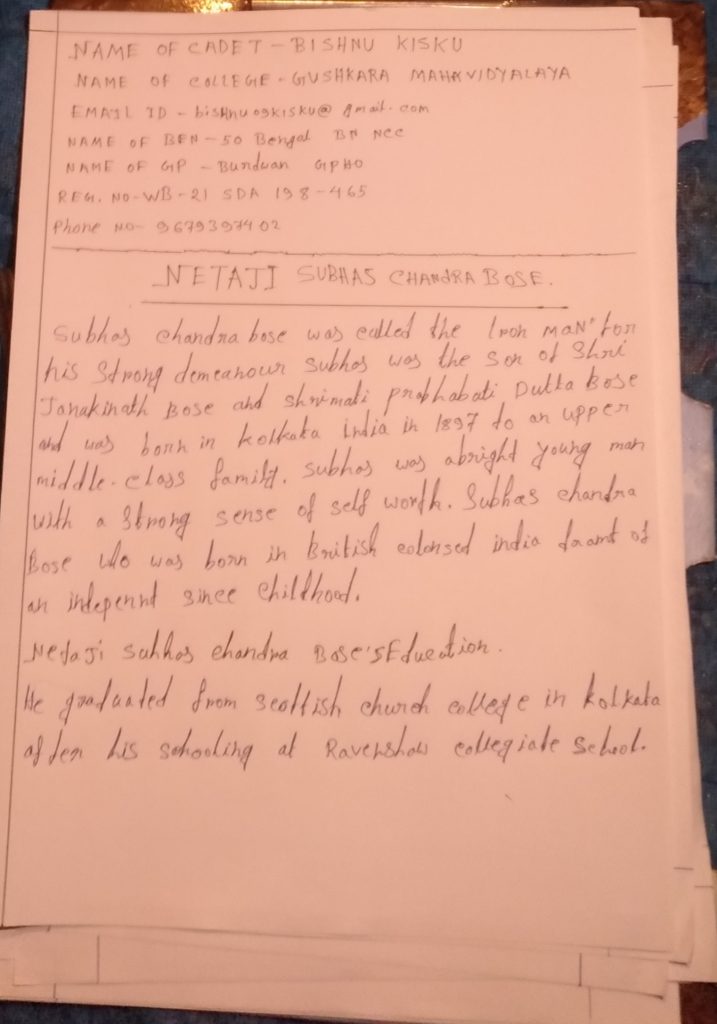 NAME OF CADET - BISHNU KISKU
NAME OF COLLEGE - GUSHKARA MAHAVIDYALAYA
EMAIL ID - bishnu09kisku@gmail.com
NAME OF BEN - 50 Bengal BN NCC
NAME OF GP - Burdwan GPHO
REG. NO - WB - 21 SDA 198 - 465
Phone NO - 9679397402
NETAJI SUBHAS CHANDRA BOSE.
Subhas chandra bose was called the Iron MaN' for
his strong demeanour subhas was the son of Shri
Janakinath Bose and shrimati prabhabati Dutta Bose
and was born in kolkata india in 1897 to an upper
middle-class family. subhas was abright young man
with a strong sense of self worth. Subhas chandra
Bose who was born in British colonsed india of
an independ since childhood.
Netaji Subhas chandra Bose's Education.
He graduated from scottish church college in kolkata
after his schooling at Ravenshow collegiate school.